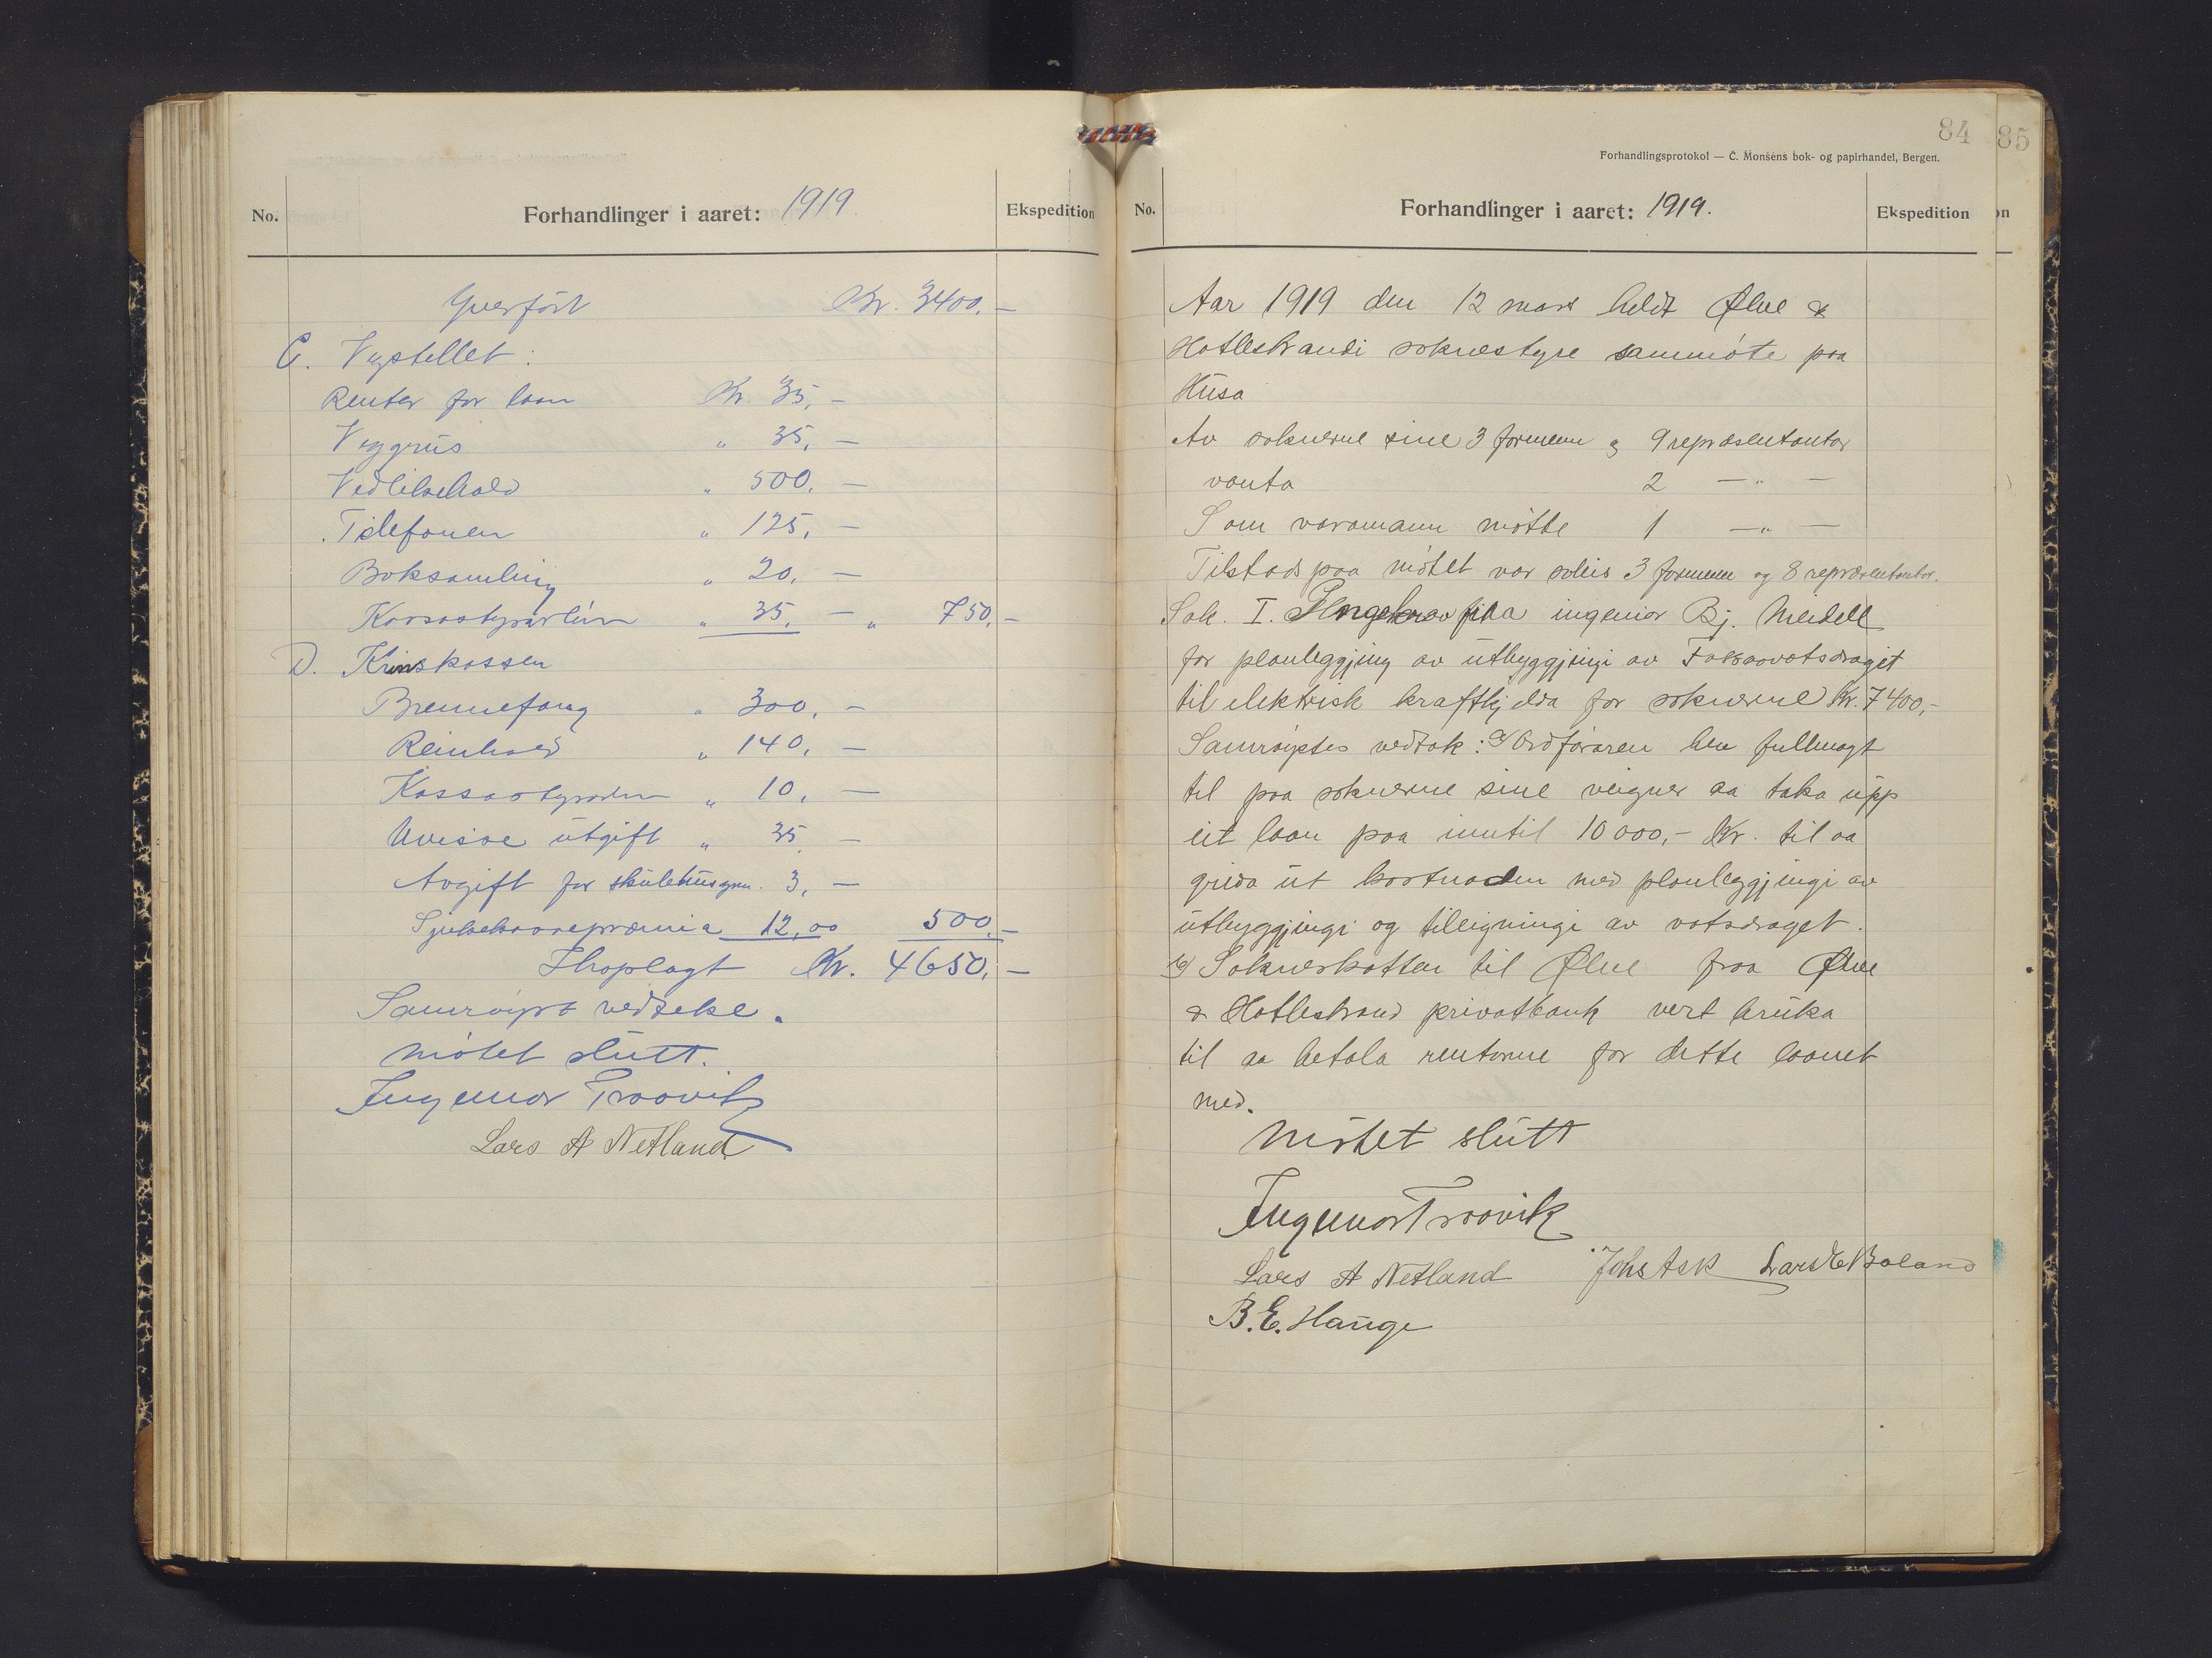 No.
Forhandlinger i aaret: 1919.
Ekspedition
Yverført Kr. 3400.—
C. Vegstellet:
Renter for laan Kr. 35,—
Veggrus " 35,—
Vedlikehald " 500,—
Telefonen " 125,—
Boksamling " 20,—
Kassastyrarløn " 35,— " 750,—
D. Krinskassen
Brennefang " 300,—
Reinhald " 140,—
Kassastyraren " 10,—
Uvisse utgift " 35,—
Avgift for skulehusgrn. 3,—
Sjukekassepræmia 12,00 500,—
Ihoplagt Kr. 4650,—
Samrøyst vedteke.
Møtet slutt.
Ingemar Traavik
Lars A Netland
84
85
Forhandlingsprotokol — C. Monsens bok- og papirhandel, Bergen.
No.
Forhandlinger i aaret: 1919.
Ekspedition
on
Aar 1919 den 12 mars heldt Ølve &
Hatlestrandi soknestyre sammøte paa
Husa
Av soknerne sine 3 formenn og 9 repræsentantar
vanta 2 —"—
Som varamann møtte 1 —"—
Tilstads paa møtet var soleis 3 formenn og 8 repræsentantar.
Sak. I. Pengekrav fraa ingeniør Bj. Meidell
for planleggjing av utbyggjingi av Fossavatsdraget
til elektrisk kraftkjelda for soknerne Kr. 7400,-
Samrøystes vedtak: a/ Ordføraren hev fullmagt
til paa soknerne sine veigner aa taka upp
eit laan paa inntil 10000,- Kr. til aa
greida ut kostnaden med planleggjingi av
utbyggjingi og tileigningi av vatsdraget.
b/ Sokneskatten til Ølve fraa Ølve
& Hatlestrand privatbank vert bruka
til aa betala rentorne for dette laanet
med.
Møtet slutt
Ingemar Traavik
Lars A Netland Johs Ask Lars E Bøland
B. E. Hauge